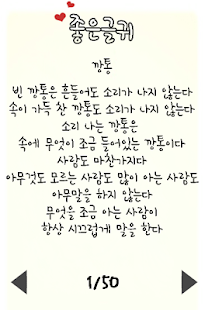 좋은글귀
깡통
빈 깡통은 흔들어도 소리가 나지 않는다
속이 가득 찬 깡통도 소리가 나지 않는다
소리 나는 깡통은
속에 무엇이 조금 들어있는 깡통이다
사람도 마찬가지다
아무것도 모르는 사람도 많이 아는 사람도
아무말을 하지 않는다
무엇을 조금 아는 사람이
항상 시끄럽게 말을 한다
1/50